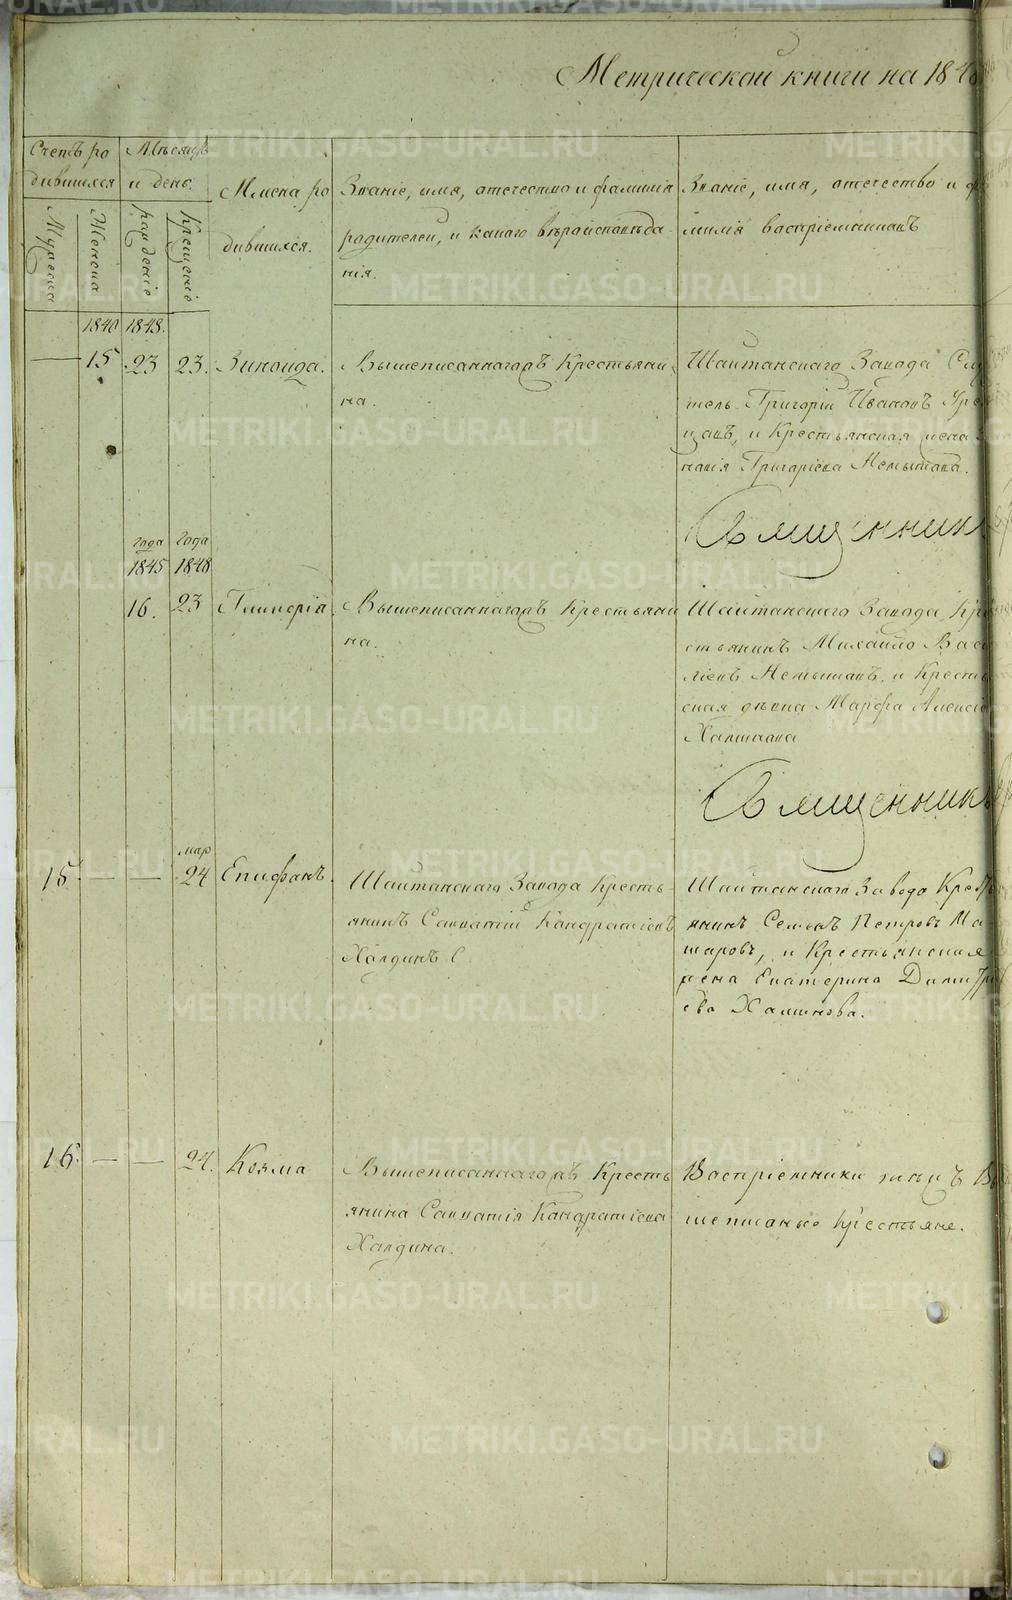 Метрической книги на 1848
Счетъ ро
дившихся
Мѣсяцъ
и день.
Мужеска
Женска
рождение
крещение
Имена ро
дившихся.
Званіе, имя, отечество и фамилія
родителей, и какаго вѣроисповѣда-
нія.
Званіе, имя, отечество и фа
милія васпріемниковъ
1848
1848.
15
23
23.
Зиноида.
Вышеписаннагожъ Крестьяни-
на.
Шайтанскаго Завода Слу
тель Григорій Ивановъ
и Крестьянская жена
Григоріева Немытова.
Священникъ
года
1845
года
1848
16.
23
Гликерія.
Вышеписаннагожъ Крестьяни
на.
Шайтанскаго Завода Кре
стьянинъ Михайло Васи
ліевъ Немытовъ, и Кресть
ская дѣвка Марфа Алексіе
Священникъ
15.
мар
24
Епифанъ.
Шайтанскаго Завода Кресть-
янинъ Савватій Кандратіевъ
Халдинъ
Шайтанскаго Заводо Кресть
янинъ Семенъ Петровъ Ма
шаровъ, и Крестьянская
жена Екатерина Димитрі
ева
16.
24.
Козма
Вышеписаннагожъ Кресть
янина Савватія Кандратіева
Халдина.
Васпріемники тѣжъ Вы
шеписаные Крестьяне.
METRIKI.GASO-URAL.RU